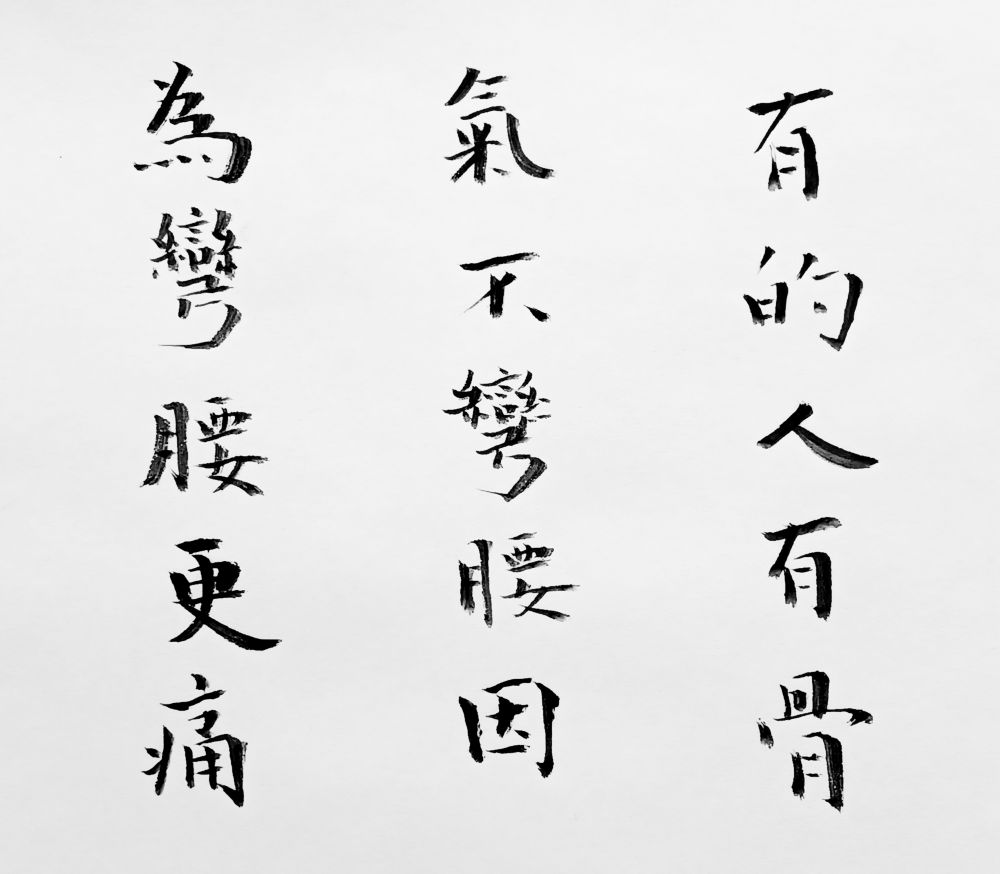 有的人有骨
氣不彎腰因
為彎腰更痛